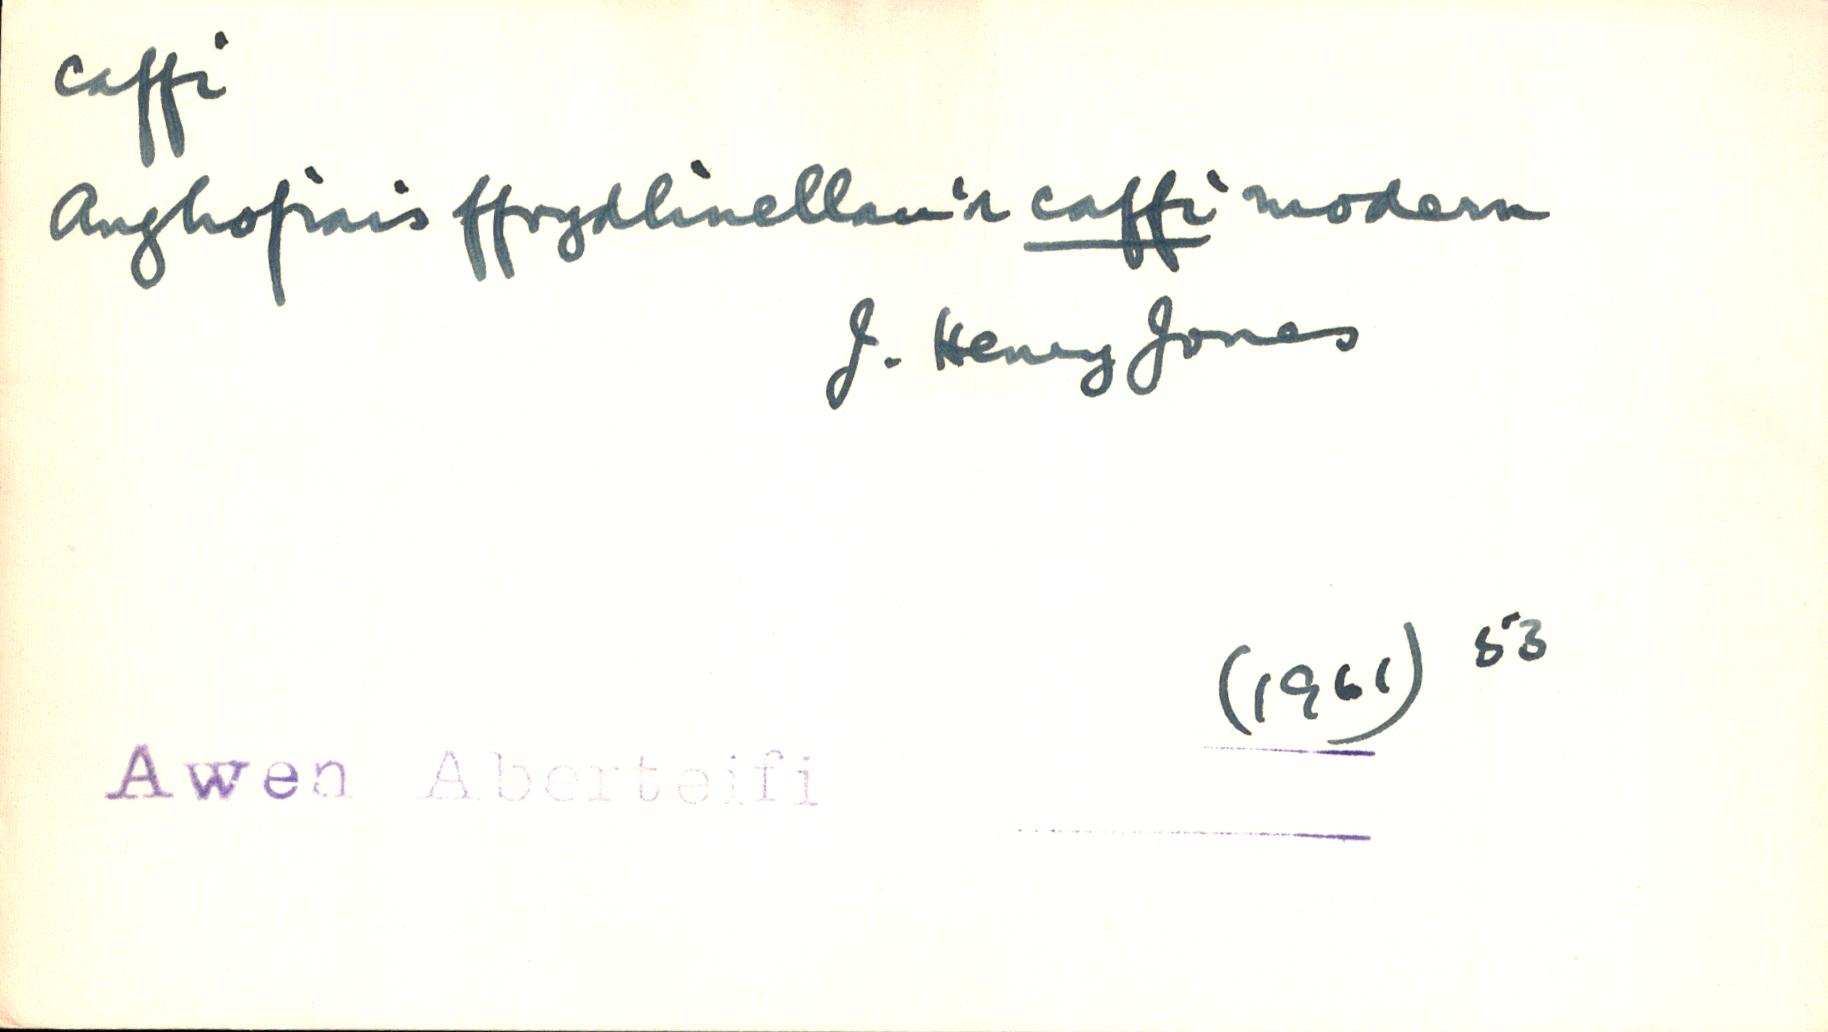 caffi
Anghofiais ffrydlinellau'r caffi modern
J. Henry Jones
(1961) 53
Awen Aberteifi